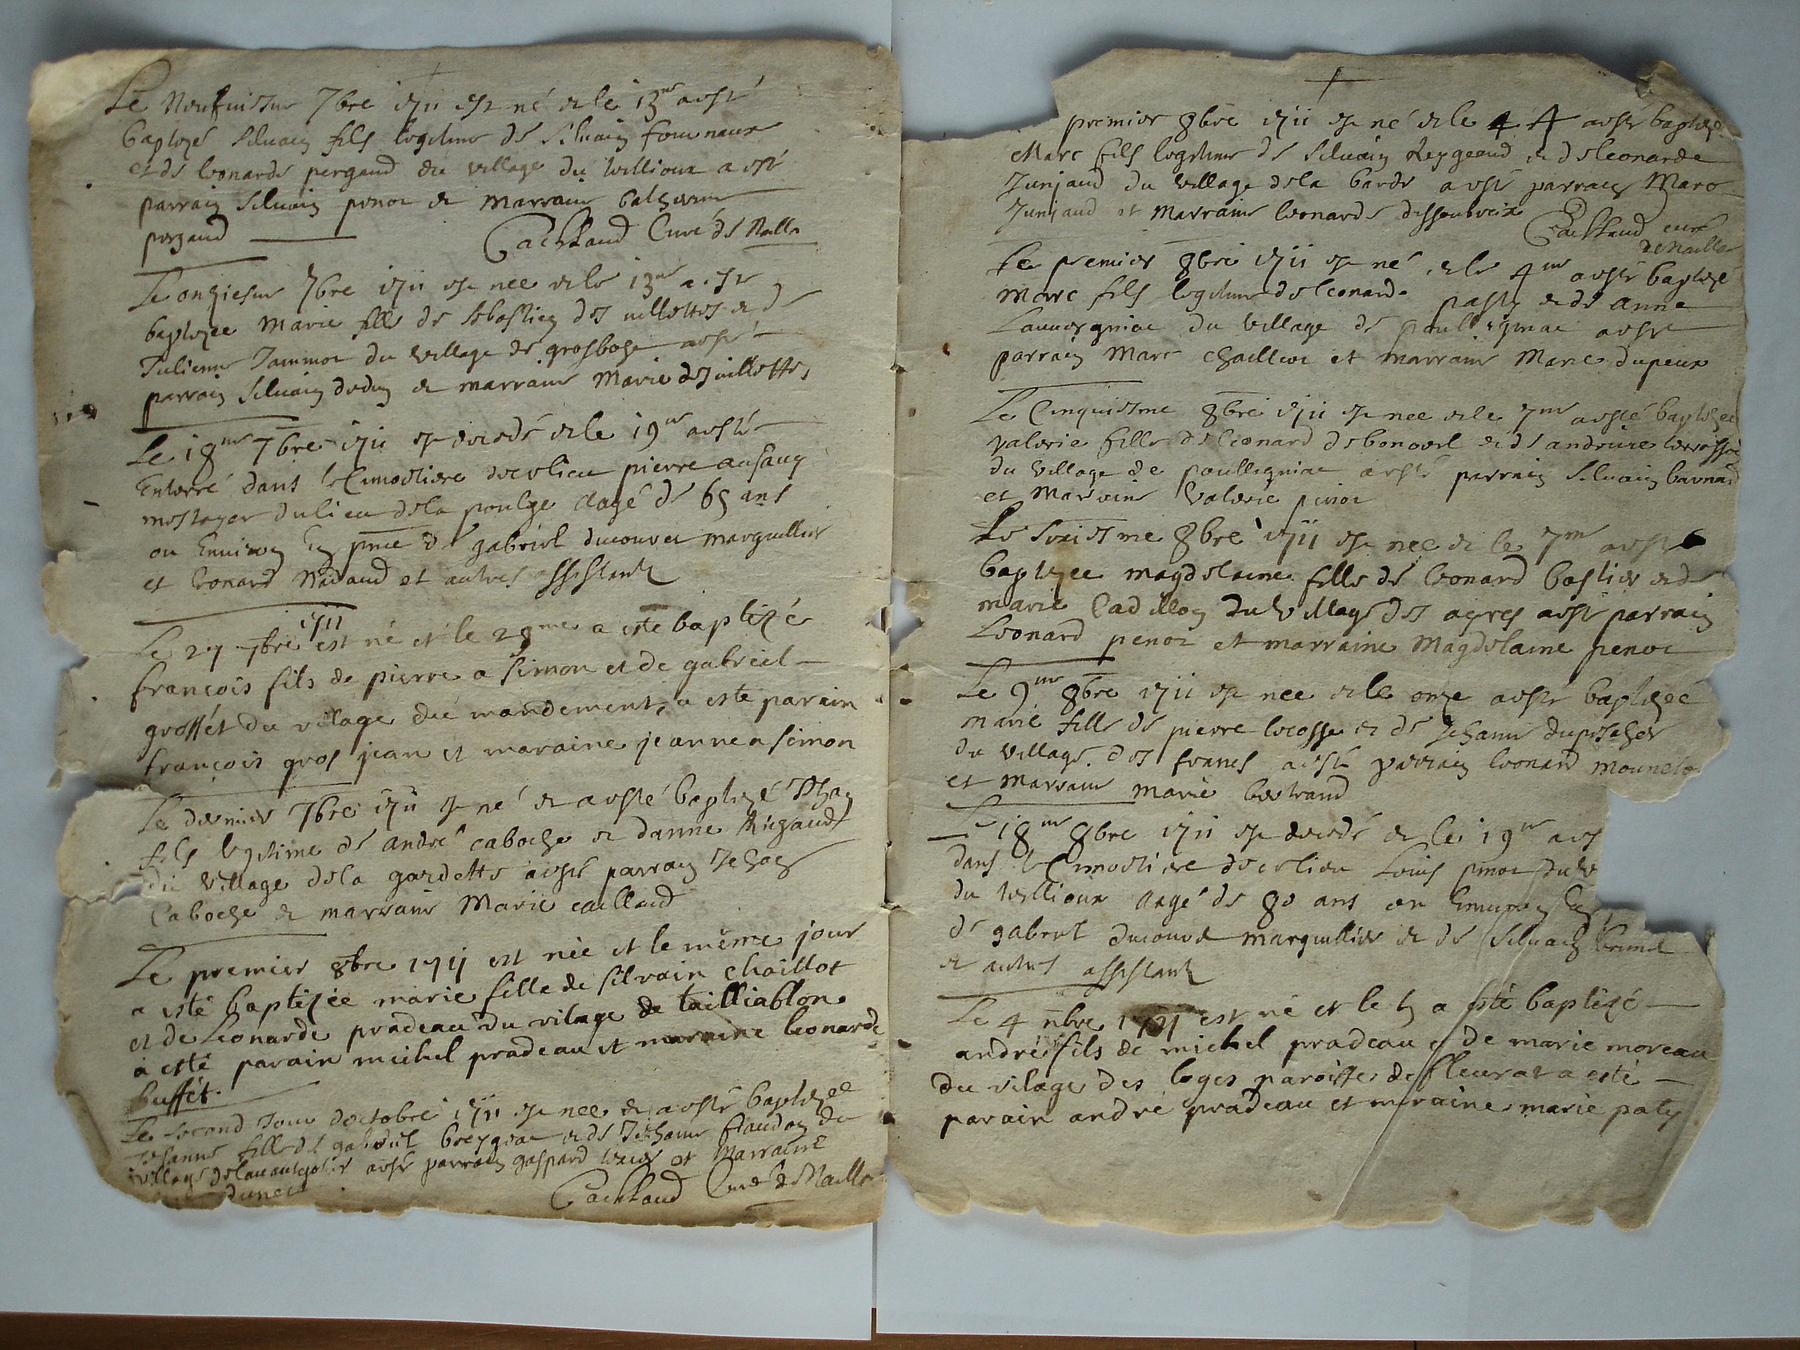 Le Neufuiesme 7bre 1711 est né et le 13me a esté
baptizé Siluain fils legitime de Siluain fourneaux
et de leonarde pergaud du village du Millioux a esté
parrain Siluain penot et marraine
pergaud Curé de Naille
Le onziesme 7bre 1711 est nee et le 13me a esté
baptizee Marie fille de sebastien des uillettes et de
Julienne Jammot du village de grosbost a esté
parrain Siluain et marraine Marie desuillettes
Le 18me 7bre 1711 est decedé et le 19me a esté
Enterré dans le Cimetiere de ce lieu pierre
mestayer du lieu de la pouge aagé de 65 ans
ou Enuiron En pnce de gabriel ducouret marguillier
et leonard Nadaud et autres assistants
1711
Le 27 7bre est né et le 28me a esté baptizé
françois fils de pierre a simon et de gabriel
grosset du vilage du mandement, a esté parain
françois gros jean et maraine jeanne a simon
Le dernier 7bre 1711 est né et a esté baptizé Jehan
fils legitime de andré caboche et danne Rigaud
du village de la gardette a esté parrain Jehan
Caboche et marraine Marie caillaud
Le premier 8bre 1711 est née et le même jour
a esté baptizée marie fille de silvain chaillot
et de Léonarde pradeau du vilage de tailliablon
a esté parain michel pradeau et maraine leonarde
buffét.
Le second Jour doctobre 1711 est nee et a esté baptizee
Jehanne fille de gabriel et de Jehanne du
village a esté parrain gaspard et Marraine
Curé de Naille
premier 8bre 1711 est né et le 4 a esté baptizé
Marc fils legitime de Siluain et de leonarde
Junjaud du village de la barde a esté parrain Marc
Junjaud et Marraine leonarde
curé
de Naillat
Le premier 8bre 1711 est né et le 4me a esté baptizé
Marc fils legitime de leonard pasty et de anne
du village de a esté
parrain Marc chaillot et marraine Marie dupeux
Le Cinquiesme 8bre 1711 est nee et le 7me a esté baptizee
valerie fille de leonard et de andrive
du village de poulligniat a esté parrain Siluain
et Marraine Valerie pinot
Le sixiesme 8bre 1711 est nee et le 7me a esté
baptizee magdelaine fille de leonard bastier et de
marie Cadillon du village des ages a esté parrain
Leonard penot et marraine Magdelaine penot
Le 9me 8bre 1711 est nee et le onze a esté baptizée
marie fille de pierre lecosse et de Jehanne
du village des francs a esté parrain leonard
et marraine marie bertrand
Le 18me 8bre 1711 est decedé et le 19me a es
dans le Cimetiere de ce lieu Louis pinot
du Millioux aagé de 80 ans ou Enuiron En
de gabriel ducouret marguillier et de Siluain brunet
et autres assistants
Le 4 nbre 1711 est né et le 5 a esté baptizé
andré fils de michel pradeau et de marie moreau
du vilage des loges paroisse de fleurat a esté
parain andré pradeau et maraine marie paty